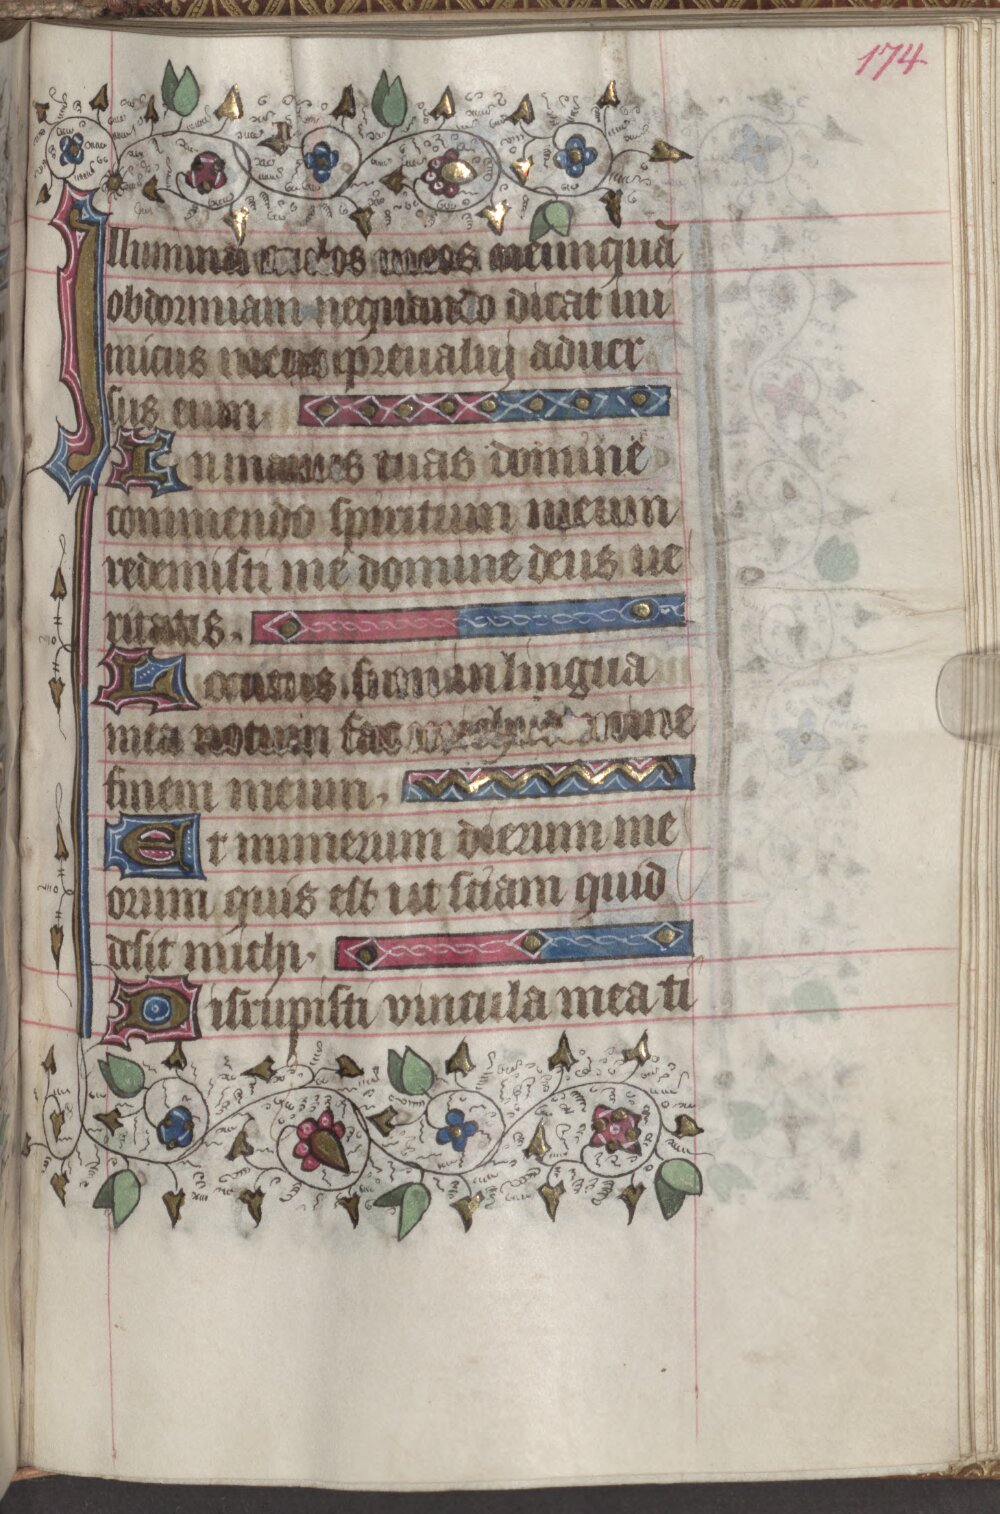 174
Illumina oculos meos ne unquā
obdormiam nequando dicat ini
micus meus preualui aduer
sus eum.
In manus tuas domine
commendo spiritum meum
redemisti me domine deus ue
ritatis.
Locutus sum in lingua
mea notum fac michi domine
finem meum.
Et numerum dierum me
orum quis est ut sciam quid
desit michi.
Disrupisti vincula mea ti